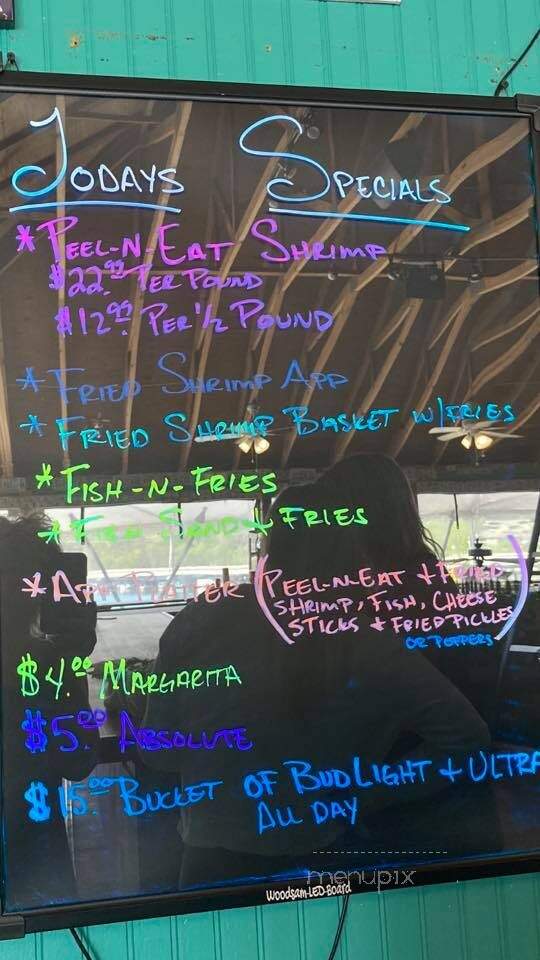 TODAYS SPECIALS
* PEEL-N-EAT SHRIMP
$22.99 PER POUND
$12.99 PER 1/2 POUND
* FRIED SHRIMP APP
* FRIED SHRIMP BASKET W/FRIES
* FISH-N-FRIES
* FISH SAND + FRIES
* APP PLATTER (PEEL-N-EAT + FRIED
SHRIMP, FISH, CHEESE
STICKS + FRIED PICKLES)
OR POPPERS
$4.00 MARGARITA
$5.00 ABSOLUTE
$15.00 BUCKET OF BUD LIGHT + ULTRA
ALL DAY
menupix
Woodsam-LED-Board